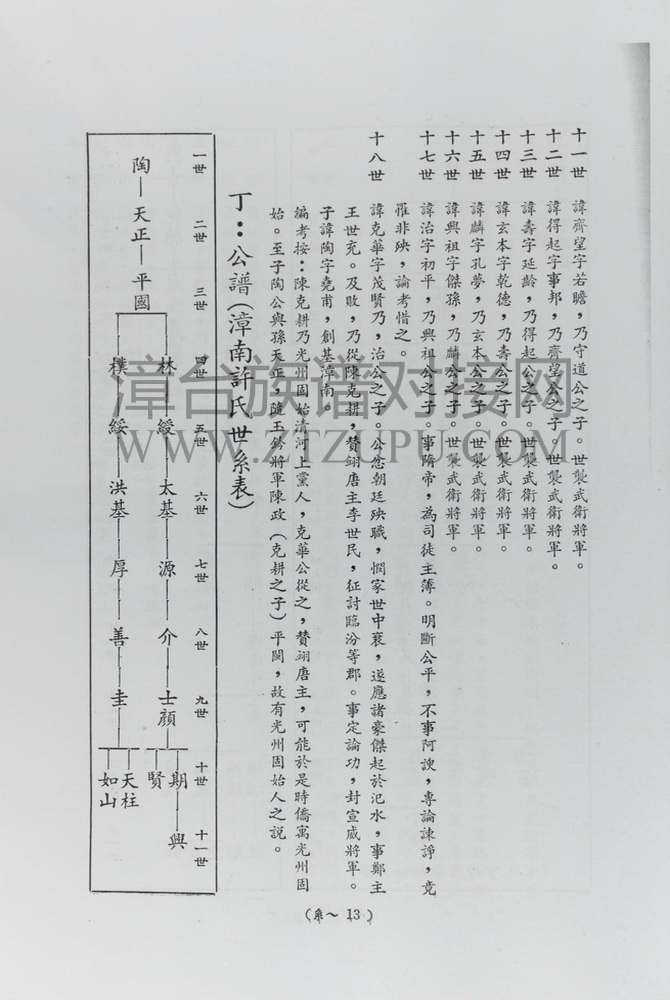 十一世　諱齊望字若瞻，乃守道公之子。世襲武衛將軍。
十二世　諱得起字事邦，乃齊望公之子。世襲武衛將軍。
十三世　諱壽字延齡，乃得起公之子。世襲武衛將軍。
十四世　諱玄本字乾德，乃壽公之子。世襲武衛將軍。
十五世　諱麟字孔夢，乃玄本公之子。世襲武衛將軍。
十六世　諱興祖字傑孫，乃麟公之子。世襲武衛將軍。
十七世　諱治字初平，乃興祖公之子。事隋帝，為司徒主簿。明斷公平，不事阿諛，專論諫諍，竟
罹非殃，論考惜之。
十八世　諱克華字茂賢乃，治公之子。公忿朝廷殃職，憫家世中衰，遂應諸豪傑起於汜水，事鄭主
王世充。及敗，乃從陳克耕，贊翊唐主李世民，征討臨汾等郡。事定論功，封宣威將軍。
子諱陶字堯甫，創基漳南。
編考按：陳克耕乃光州固始清河上黨人，克華公從之，贊翊唐主，可能於是時僑寓光州固
始。至子陶公與孫天正，隨玉鈐將軍陳政（克耕之子）平閩，故有光州固始人之說。
丁：公譜（漳南許氏世系表）
一世　二世　三世　四世　五世　六世　七世　八世　九世　十世　十一世
陶　天正　平國
林　綬　太基　源　介　士顏　期　興
賢
樸　綏　洪基　厚　善　圭　天柱
如山
（系～13）
漳台族谱对接网
WWW.ZTZUPU.COM